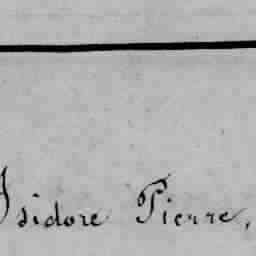 Isidore Pierre,